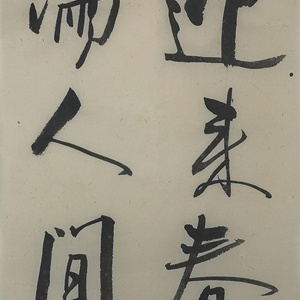 迎来春
满人间